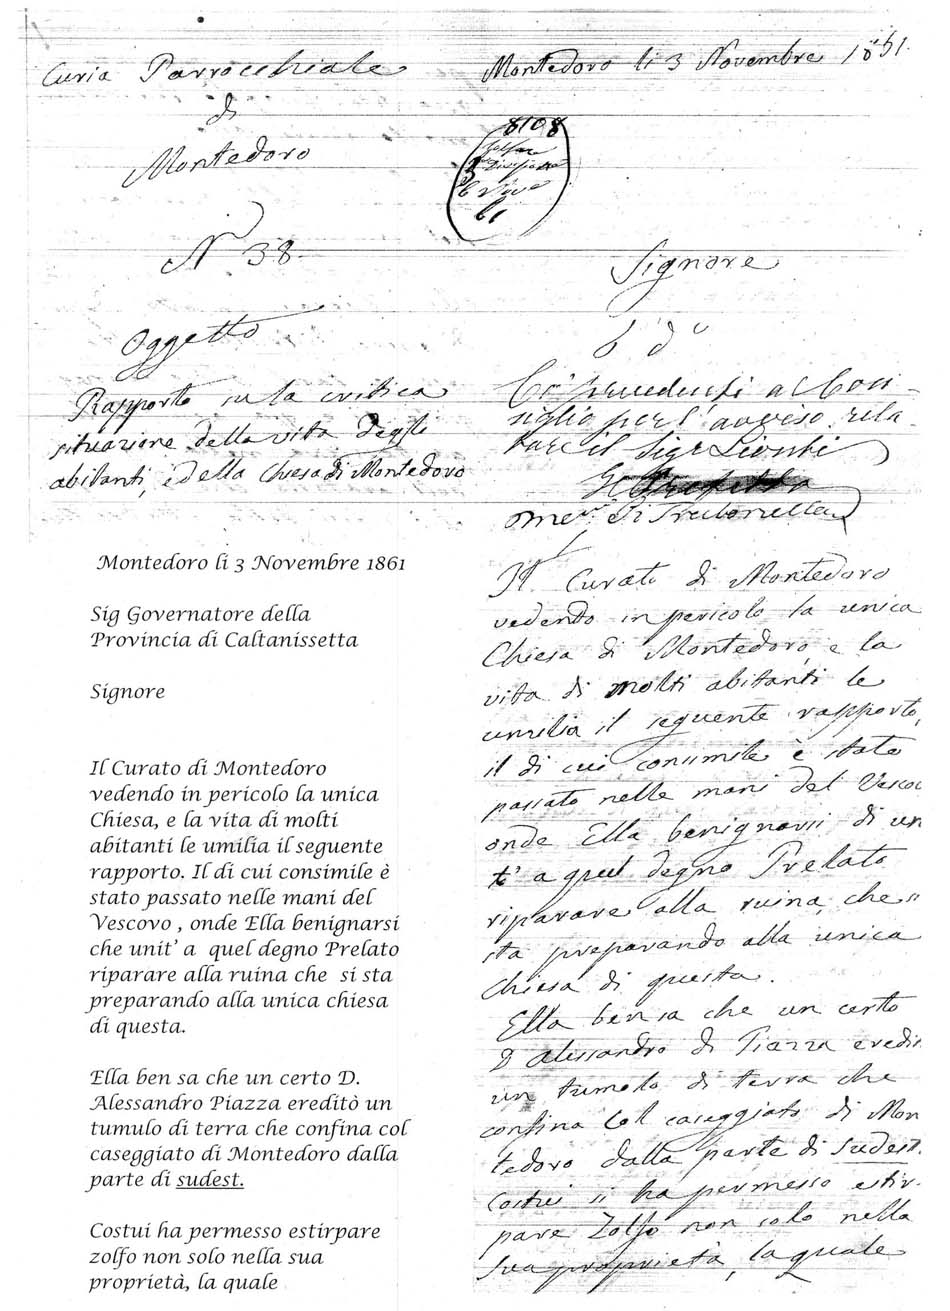 Curia Parrocchiale
di
Montedoro
N 38.
Oggetto
Rapporto su la critica
situazione della vita degli
abitanti, e della Chiesa di Montedoro
Montedoro li 3 Novembre 1861
8108
61
Signore
niglio per l'
tare il Sigr
Il Curato di Montedoro
vedendo in pericolo la unica
Chiesa di Montedoro, e la
vita di molti abitanti le
umilia il seguente rapporto,
il di cui consimile è stato
passato nelle mani del Vesco
onde Ella benignarsi di un
t' a quel degno Prelato
riparare alla ruina, che si
sta preparando alla unica
Chiesa di questa.
Ella ben sa che un certo
D Alessandro di Piazza eredi
un tumolo di terra che
confina col caseggiato di Mon
tedoro dalla parte di sudest.
Costui si ha permesso estir-
pare Zolfo non solo nella
sua proprietà, la quale
Montedoro li 3 Novembre 1861
Sig Governatore della
Provincia di Caltanissetta
Signore
Il Curato di Montedoro
vedendo in pericolo la unica
Chiesa, e la vita di molti
abitanti le umilia il seguente
rapporto. Il di cui consimile è
stato passato nelle mani del
Vescovo , onde Ella benignarsi
che unit' a quel degno Prelato
riparare alla ruina che si sta
preparando alla unica chiesa
di questa.
Ella ben sa che un certo D.
Alessandro Piazza ereditò un
tumulo di terra che confina col
caseggiato di Montedoro dalla
parte di sudest.
Costui ha permesso estirpare
zolfo non solo nella sua
proprietà, la quale